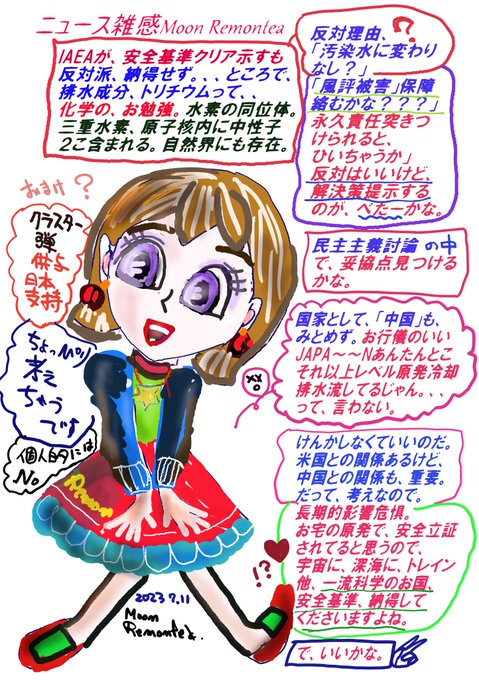 ニュース雑感Moon Remontea
IAEAが、安全基準クリア示すも
反対派、納得せず。、、ところで、
排水成分、トリチウムって、、
化学の、お勉強。水素の同位体。
三重水素、原子核内に中性子
2こ含まれる。自然界にも存在。
反対理由、?
「汚染水に変わり
なし?」
「風評被害」保障
絡むかな???」
永久責任突きつ
けられると、
ひいちゃうか」
反対はいいけど、
解決策提示する
のが、べたーかな。
民主主義討論 の中
で、妥協点見つける
かな。
国家として、「中国」も、
みとめず。お行儀のいい
JAPA~~Nあんたんとこ
それ以上レベル原発冷却
排水流してるじゃん。、、
って、言わない。
けんかしなくていいのだ。
米国との関係あるけど、
中国との関係も、重要。
だって、考えなので。
長期的影響危惧。
お宅の原発で、安全立証
されてると思うので、
宇宙に、深海に、トレイン
他、一流科学のお国、
安全基準、納得して
くださいますよね。
!?
で、いいかな。
おまけ?
クラスター
弾
供与
日本
支持
ちょっぴり
考え
ちゃう
です
個人的には
No
××
Remon
2023 7.11
Moon
Remontea.